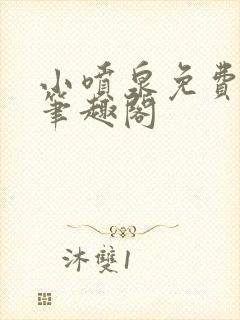 小噴泉免費
筆趣閣
沐雙1